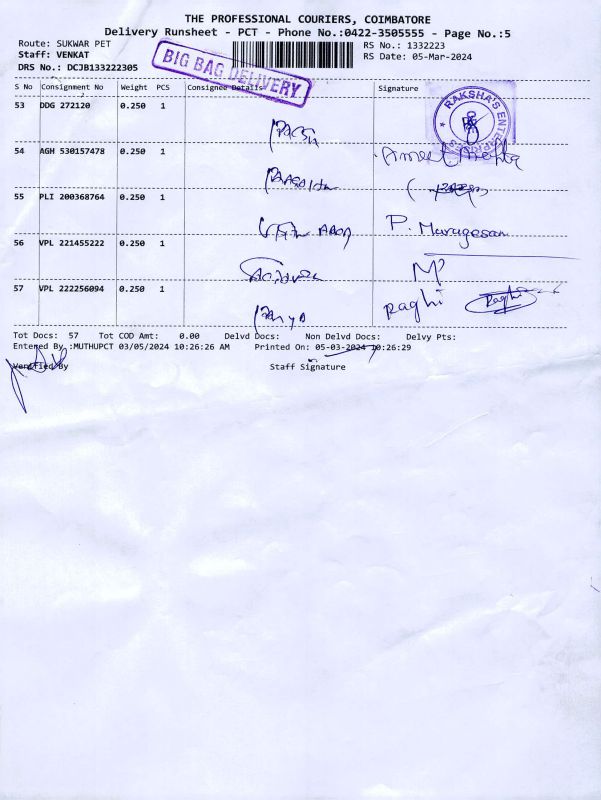 THE PROFESSIONAL COURIERS, COIMBATORE
Delivery Runsheet - PCT - Phone No.:0422-3505555 - Page No.:5
Route: SUKWAR PET
RS No.: 1332223
Staff: VENKAT
RS Date: 05-Mar-2024
DRS No.: DCJB133222305
BIG BAG DELIVERY
S No Consignment No Weight PCS Consignee Details Signature
53 DDG 272120 0.250 1
RAKSHA'S ENTERPRISES
54 AGH 530157478 0.250 1
55 PLI 200368764 0.250 1
P. Murugesan
56 VPL 221455222 0.250 1
57 VPL 222256094 0.250 1
raghi Raghi
Tot Docs: 57 Tot COD Amt: 0.00 Delvd Docs: Non Delvd Docs: Delvy Pts:
Entered By :MUTHUPCT 03/05/2024 10:26:26 AM Printed On: 05-03-2024 10:26:29
Verified By Staff Signature